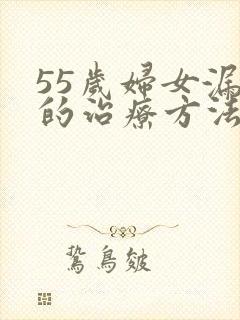 55歲婦女漏
的治療方法
鷙鳥皴